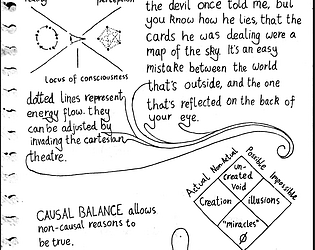 perception
locus of consciousness
dotted lines represent
energy flow. they
can be adjusted by
invading the cartesian
theatre.
the devil once told me, but
you know how he lies, that the
cards he was dealing were a
map of the sky. It's an easy
mistake between the world
that's outside, and the one
that's reflected on the back of
your eye.
Actual Non-Actual Possible Impossible
un-
created
Void
Creation
illusions
"miracles"
Ø
CAUSAL BALANCE allows
non-causal reasons to
be true.